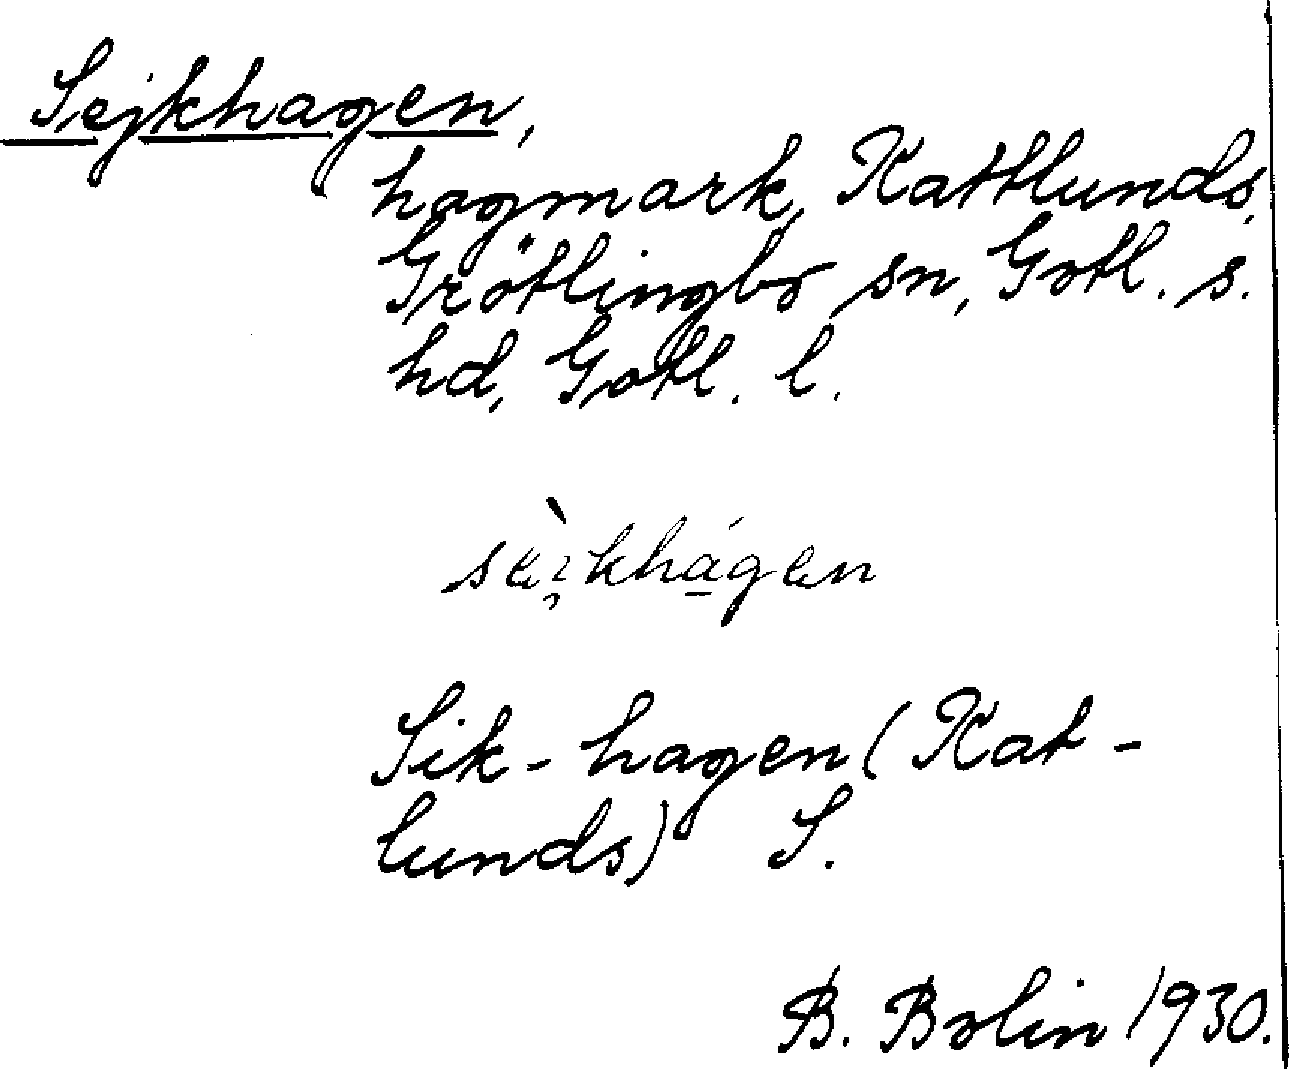 Sejkhagen,
hagmark, Kattlunds,
Grötlingbo sn, Gotl. s.
hd, Gotl. l.
sèi̯khágen
Sik-hagen (Kat-
lunds) S.
B. Bolin 1930.